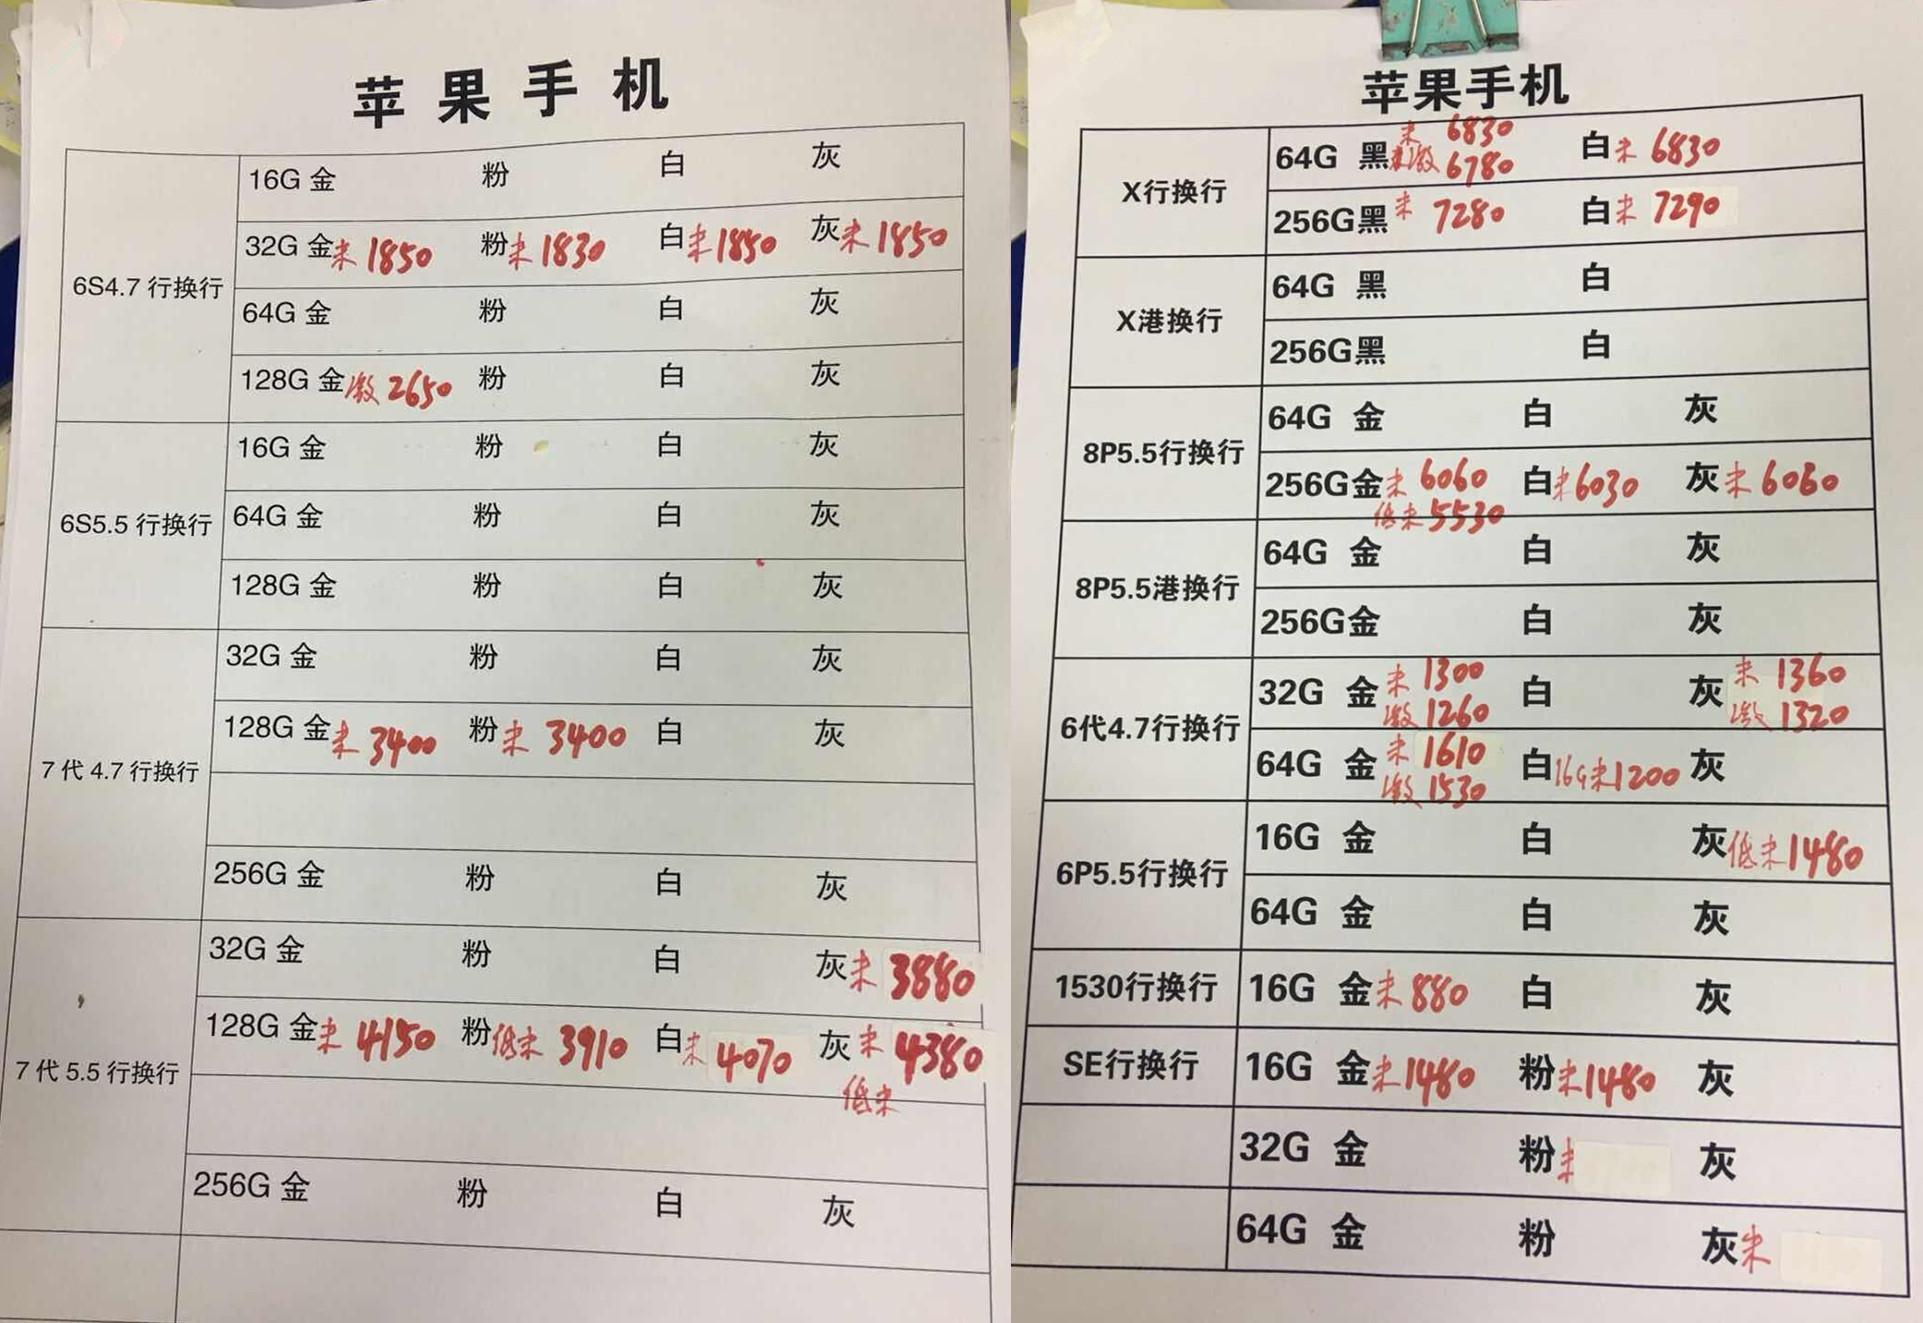 苹果手机
6S4.7 行换行
16G 金 粉 白 灰
32G 金 未 1850 粉 未 1830 白 未 1850 灰 未 1850
64G 金 粉 白 灰
128G 金 激 2650 粉 白 灰
6S5.5 行换行
16G 金 粉 白 灰
64G 金 粉 白 灰
128G 金 粉 白 灰
7 代 4.7 行换行
32G 金 粉 白 灰
128G 金 未 3400 粉 未 3400 白 灰
256G 金 粉 白 灰
7 代 5.5 行换行
32G 金 粉 白 灰 未 3880
128G 金 未 4150 粉 低未 3910 白 未 4070 灰 未 4380
低未
256G 金 粉 白 灰
苹果手机
X行换行
64G 黑 未 6830 白 未 6830
未激 6780
256G黑 未 7280 白 未 7290
X港换行
64G 黑 白
256G黑 白
8P5.5行换行
64G 金 白 灰
256G金 未 6060 白 未 6030 灰 未 6060
低未 5530
8P5.5港换行
64G 金 白 灰
256G金 白 灰
6代4.7行换行
32G 金 未 1300 白 灰 未 1360
激 1260 激 1320
64G 金 未 1610 白 16G未1200 灰
激 1530
6P5.5行换行
16G 金 白 灰 低未1480
64G 金 白 灰
1530行换行
16G 金 未 880 白 灰
SE行换行
16G 金 未 1480 粉 未 1480 灰
32G 金 粉 未 灰
64G 金 粉 灰 未